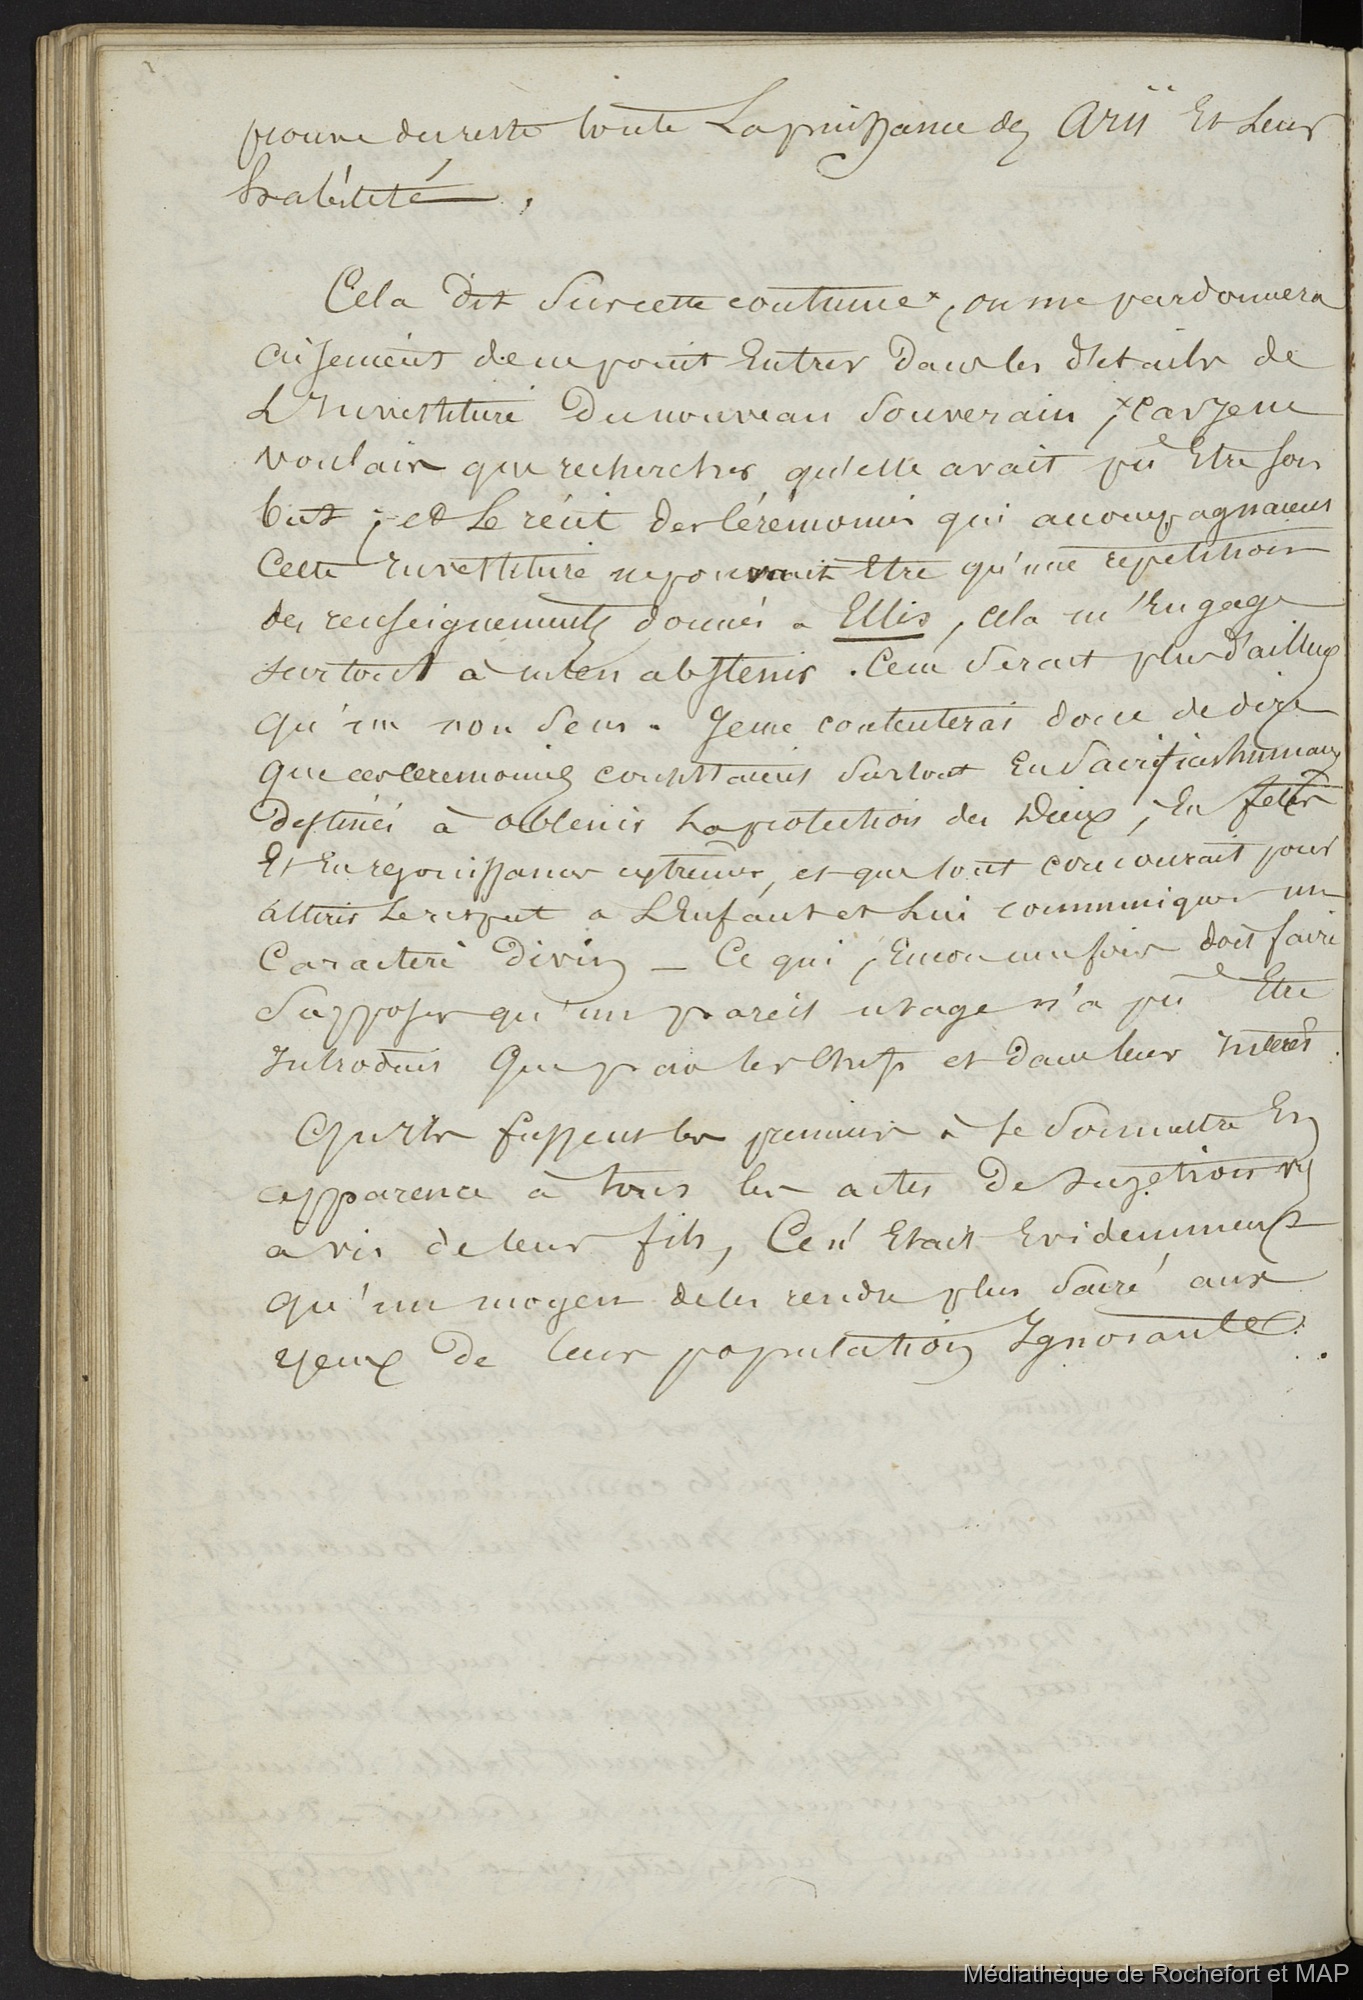 prouve du reste toute La puissance des Arii Et Leur
habileté.
Cela dit sur cette coutume x, on me pardonnera
aisement de ne point Entrer Dans les détails de
L'Investiture Du nouveau souverain, x car je ne
voulais que rechercher qu'elle avait pû Etre son
but; et Le récit des Cérémonies qui accompagnaient
Cette Investiture ne pouvait Etre qu'une repetition
des renseignements donnés a Ellis, cela m'Engage
surtout à m'en abstenir. Ceux serait plus d'ailleurs
qu'un non sens. Je me contenterai donc de dire
que ces ceremonies consistaient surtout En sacrifices humains
destinés à obtenir La protection des Dieux, En fetes
Et En rejouissances extremes, et que tout concourait pour
attirer Le respect a L'Enfant et Lui communiquer un
Caractere Divin — Ce qui, Encore une fois doit faire
supposer qu'un pareil usage n'a pû Etre
Introduit Que par les Chefs et dans leur Interet.
Qu'ils fussent les premiers à se soumettre En
apparence à tous les actes De sujetion vis
a vis de leur fils, Ce n'Etait Evidemment
qu'un moyen de les rendre plus sacré aux
yeux de leur population Ignorante.
Médiathèque de Rochefort et MAP